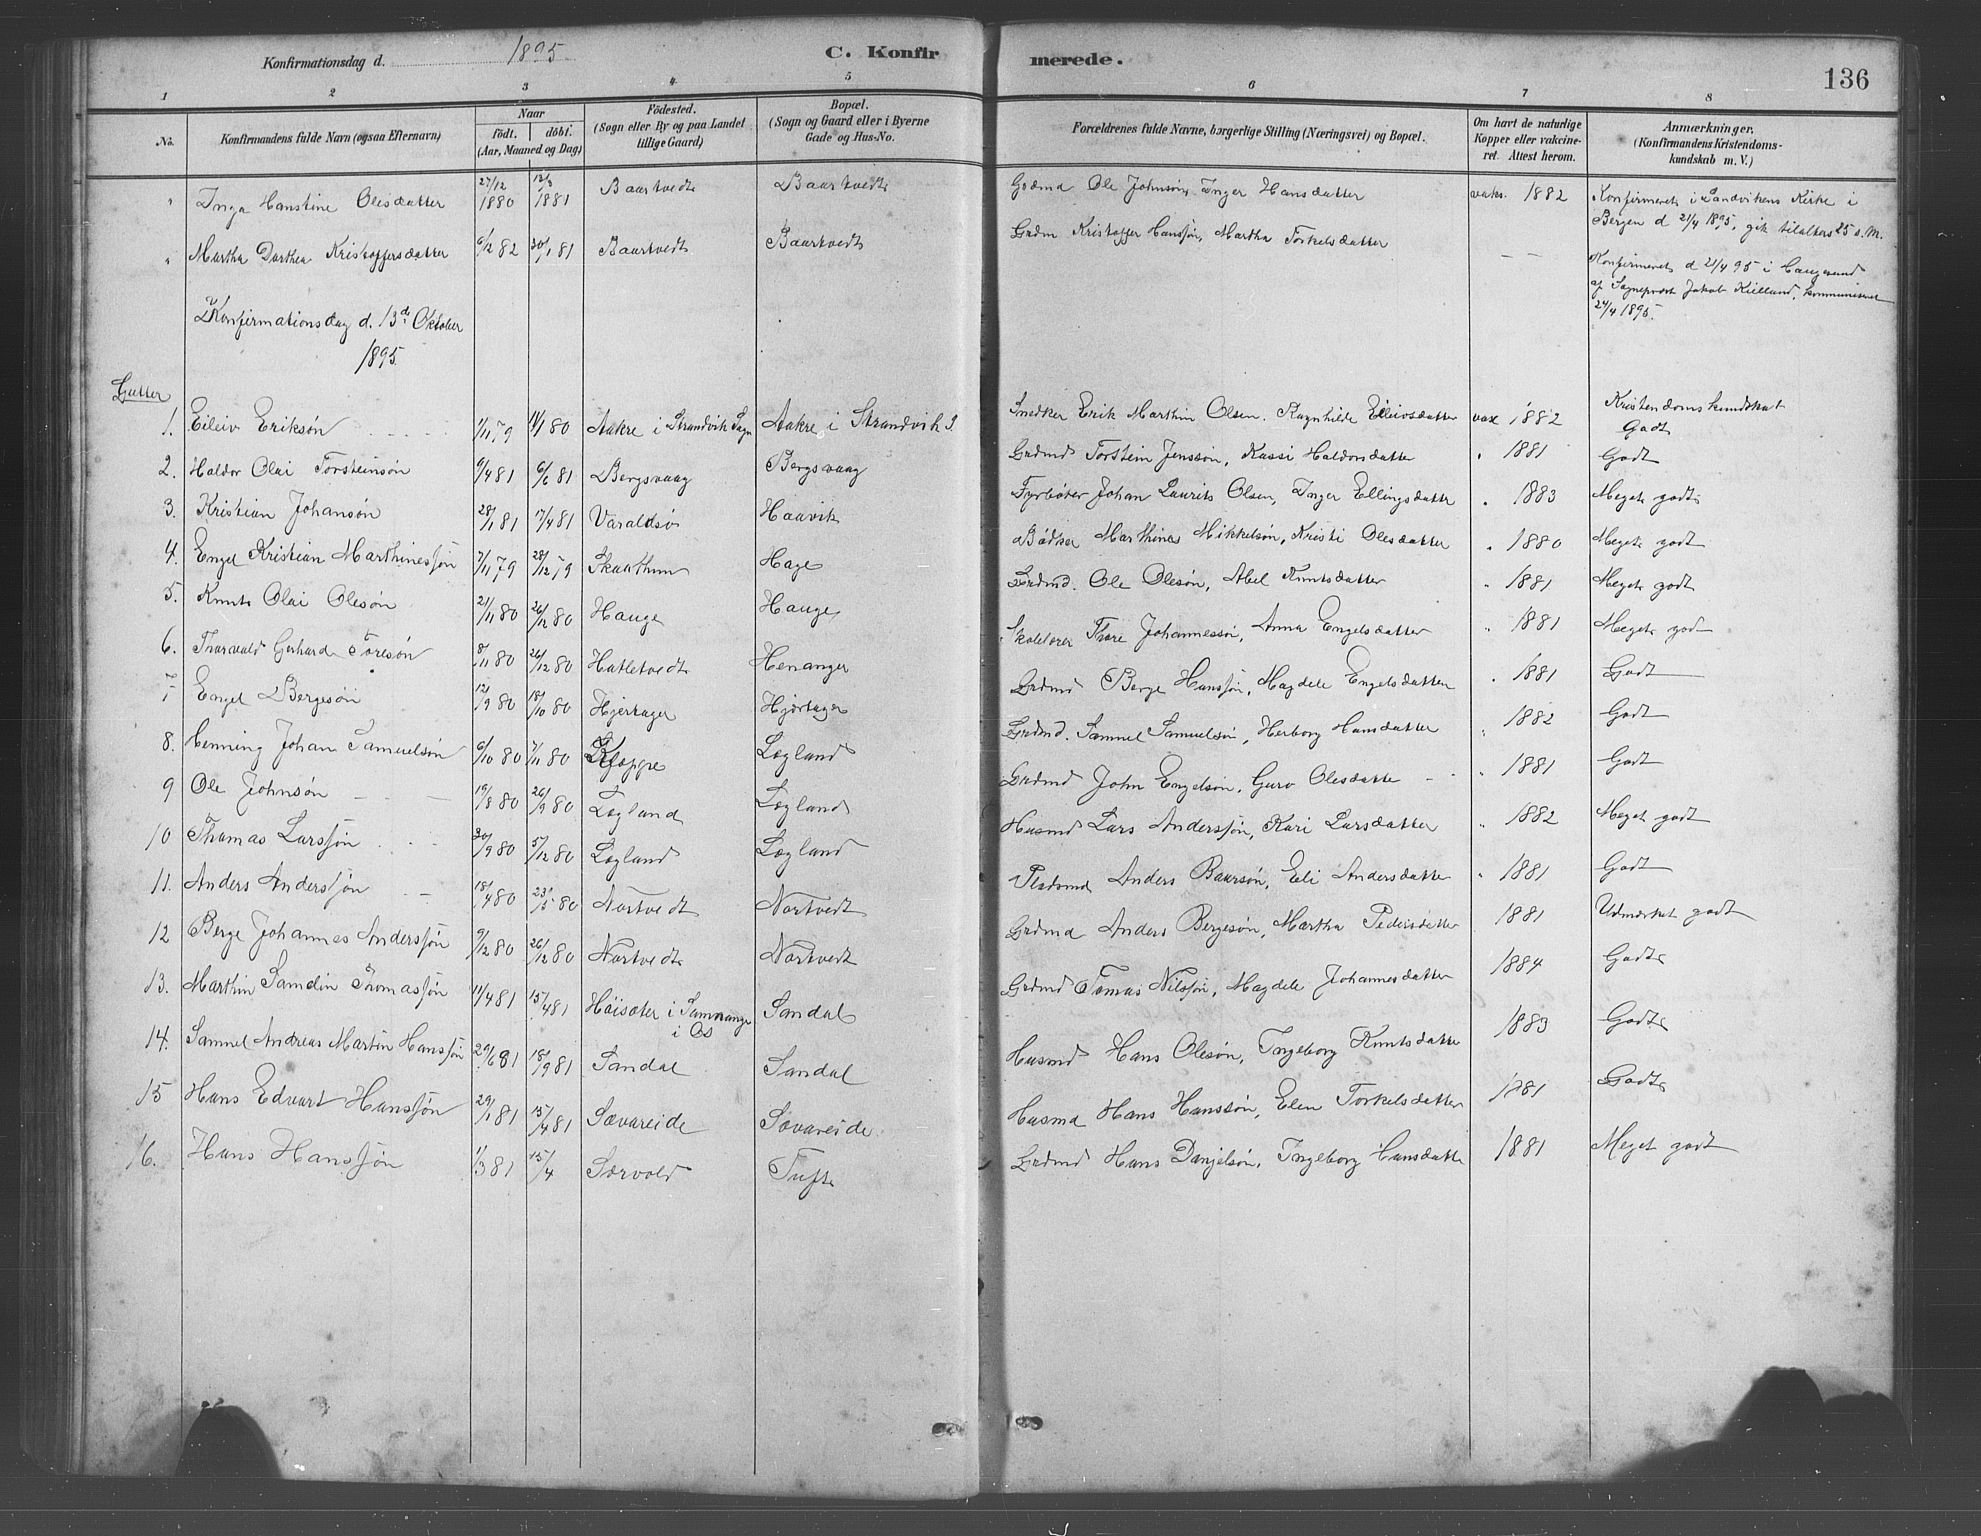 Konfirmationsdag d. 1895 C. Konfirmerede. 136
1 2 3 4 5 6 7 8
No. Konfirmandens fulde Navn (ogsaa Efternavn) Naar født. døbt. (Aar, Maaned og Dag) Födested. (Sogn eller By og paa Landet tillige Gaard) Bopæl. (Sogn og Gaard eller i Byerne Gade og Hus-No. Forældrenes fulde Navne, borgerlige Stilling (Næringsvei) og Bopæl. Om havt de naturlige Kopper eller vakcineret. Attest herom. Anmærkninger. (Konfirmandens Kristendomskundskab m. V.)
" Inga Hanstine Olesdatter 27/12 1880 12/3 1881 Baartvedt Baartvedt Grdmd Ole Johnsøn, Inger Hansdatter vaks. 1882 Konfirmeret i Sandvikens Kirke i
Bergen d 21/4 1895, gik tilalters 25 s. M.
" Martha Dorthea Kristoffersdatter 6/12 82 30/1 81 Baartvedt Baartvedt Grdm Kristoffer Hanssøn, Martha Torkelsdatter — — Konfirmeret d 21/4 95 i Haugesund
af Sognepræst Jakob Kielland, kommuniseret
24/4 1895.
Konfirmationsdag d. 13d Oktober
1895.
Gutter
1. Eileiv Eriksøn 1/11 79 14/1 80 Aakre i Strandvik Sogn Aakre i Strandvik S Snedker Erik Marthin Olsen. Ragnhilde Eileivsdatter vax 1882 Kristendomskundskab
Godt
2. Haldor Olai Torsteinsøn 6/4 81 6/6 81 Bergsvaag Bergsvaag Grdmd Torstein Jenssøn, Kassi Haldorsdatter " 1881 Godt
3. Kristian Johansøn 28/1 81 17/4 81 Varaldsø Haavik Fyrbøter Johan Laurits Olsen, Inger Ellingsdatter " 1883 Meget godt
4. Engel Kristian Marthinessøn 7/11 79 28/12 79 Skaathun Hage Bødker Marthines Mikkelsøn, Kristi Olesdatter " 1880 Meget godt
5. Knut Olai Olesøn 21/11 80 26/12 80 Hauge Hauge Grdmd. Ole Olesøn, Abel Knutsdatter " 1881 Meget godt
6. Thorvald Gerhard Toresøn 8/11 80 26/12 80 Hatletvedt Henanger Skolelærer Thore Johannessøn, Anna Engelsdatter " 1881 Meget godt
7. Engel Bergesøn 12/9 80 18/10 80 Hjertager Hjørtager Grdmd Berge Hanssøn, Magdele Engelsdatter " 1881 Godt
8. Henning Johan Samuelsøn 6/10 80 7/11 80 Kleppe Lægland Grdmd. Samuel Samuelsøn, Herborg Hansdatter " 1882 Godt
9 Ole Johnsøn 19/8 80 26/9 80 Lægland Lægland Grdmd John Engelsøn, Guro Olesdatter " 1881 Godt
10 Thomas Larssøn 30/9 80 5/12 80 Lægland Lægland Husmd Lars Anderssøn, Kari Larsdatter " 1882 Meget godt
11. Anders Anderssøn 18/4 80 23/5 80 Nortvedt Nortvedt Pladsmd Anders Baarsøn, Eli Andersdatter " 1881 Godt
12 Berge Johannes Anderssøn 9/12 80 26/12 80 Nortvedt Nortvedt Grdmd Anders Bergesøn, Martha Pedersdatter 1881 Udmærket godt
13. Marthin Samdin Thomassøn 11/4 81 15/4 81 Høisæter i Samnanger i Os Sandal Grdmd Tomas Nilssøn, Magdele Johannesdatter 1884 Godt
14. Samuel Andreas Martin Hanssøn 29/6 81 18/9 81 Sandal Sandal Husmd Hans Olesøn, Ingeborg Knutsdatter 1883 Godt
15 Hans Edvart Hanssøn 29/1 81 15/4 81 Sævareide Sævareide Husmd Hans Hanssøn, Elen Torkelsdatter 1881 Godt
16. Hans Hanssøn 1/3 81 15/4 Særvold Tufte Grdmd Hans Danjelsøn, Ingeborg Hansdatter 1881 Meget godt